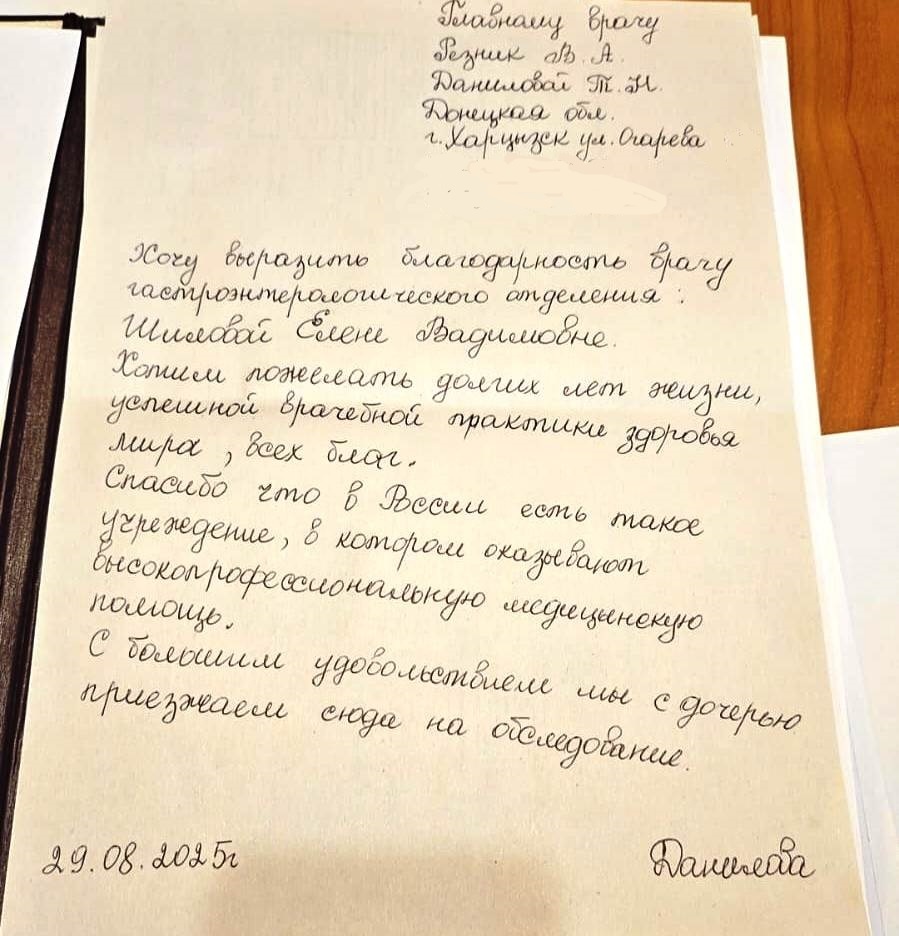 Главному врачу
Резник В. А.
Даниловой Т. Н.
Донецкая обл.
г. Харцызск ул. Огарева
Хочу выразить благодарность врачу
гастроэнтерологического отделения :
Шиловой Елене Вадимовне.
Хотим пожелать долгих лет жизни,
успешной врачебной практики здоровья
мира, всех благ.
Спасибо что в России есть такое
учреждение, в котором оказывают
высокопрофессиональную медицинскую
помощь.
С большим удовольствием мы с дочерью
приезжаем сюда на обследование.
29.08.2025г
Данилова